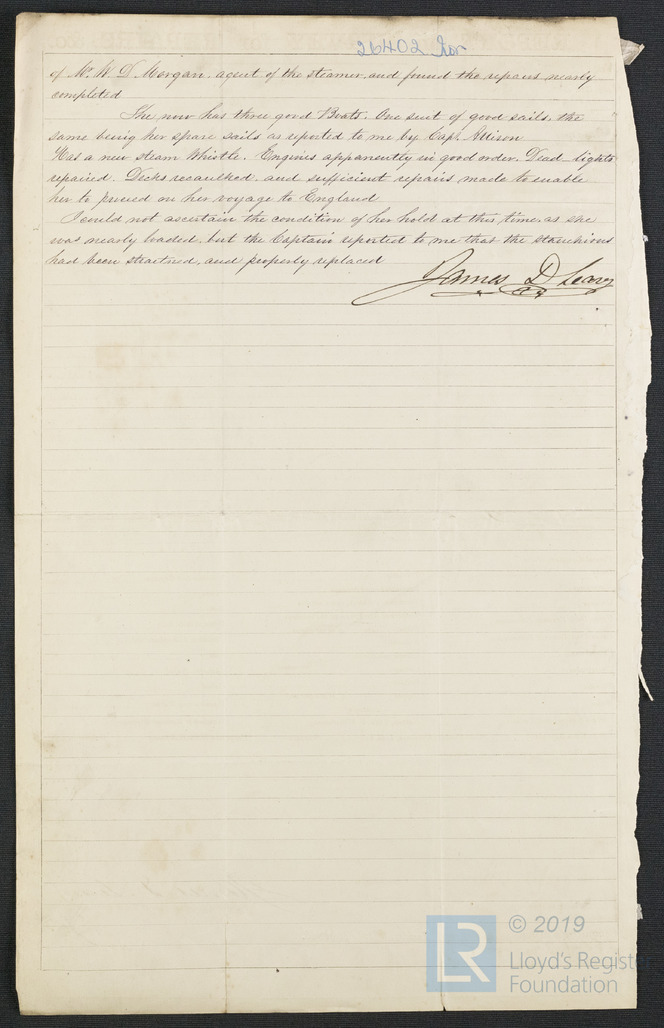 26402 Iron
of Mr. W. D. Morgan. agent of the steamer, and found the repairs nearly
completed
She now has three good Boats. One suit of good sails, the
same being her spare sails as reported to me by Capt. Allison
Has a new steam Whistle. Engines apparently in good order. Dead-lights
repaired. Decks recaulked, and sufficient repairs made to enable
her to proceed on her voyage to England
I could not ascertain the condition of her hold at this time, as she
was nearly loaded, but the Captain reported to me that the stanchions
had been straitned, and properly replaced
James D Leary
© 2019
LR
Lloyd's Register
Foundation